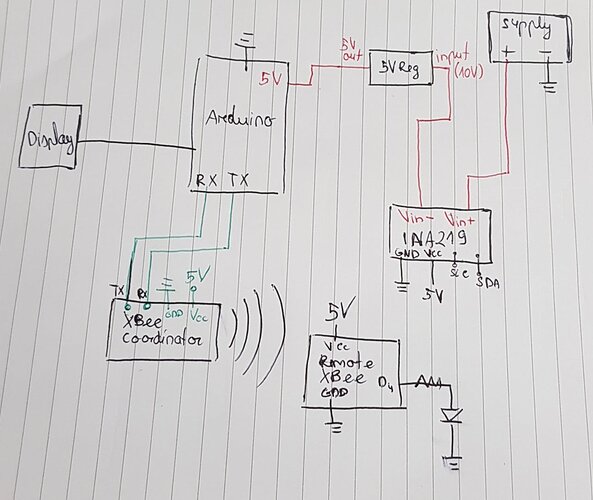 Supply
+ −
5V
out
5V Reg
input
(10V)
5V
Arduino
Display
RX TX
Vin- Vin+
INA219
GND Vcc
Scl
SDA
5V
TX
Rx
GND
5V
Vcc
XBee
Coordinator
5V
Vcc
Remote
XBee
D4
GND